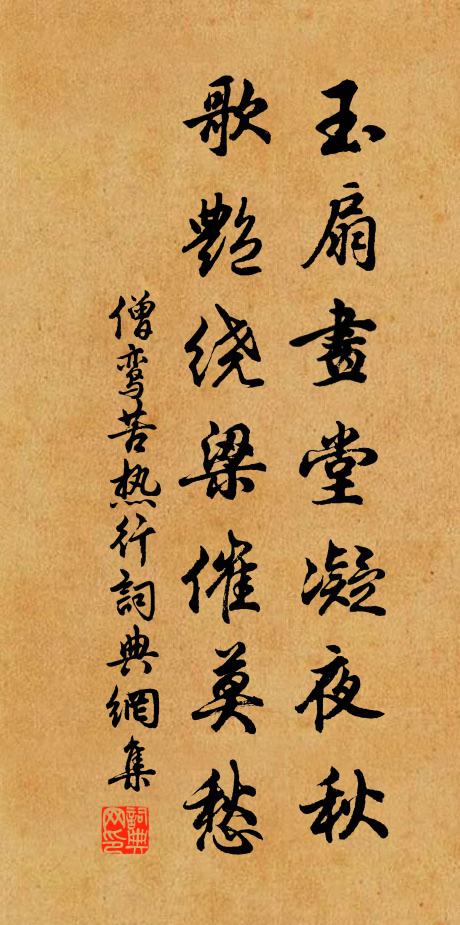 玉扇畫堂凝夜秋
歌艶绕梁催莫愁
僧鸾苦热行詞典網集
詞典网印